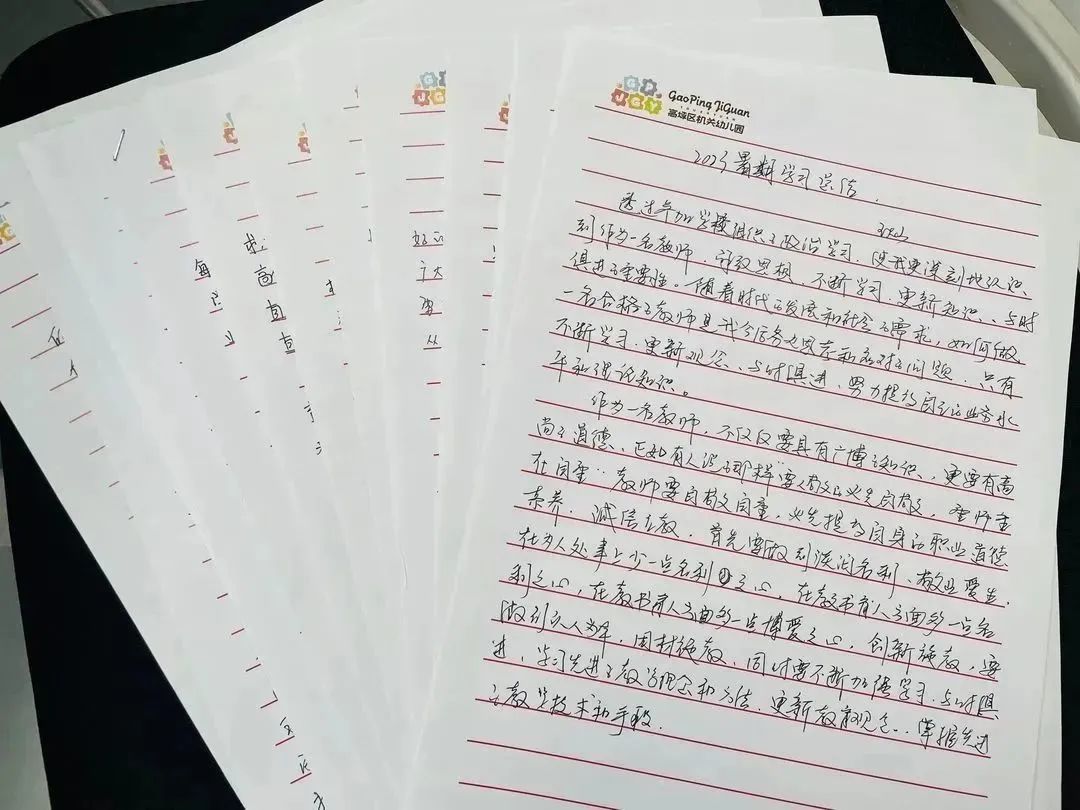 GaoPing JiGuan
高坪区机关幼儿园
2023暑期学习总结
通过参加学校组织的政治学习,使我更深刻地认识
到作为一名教师,解放思想,不断学习,更新知识、与时
俱进的重要性。随着时代的发展和社会的需求,如何做
一名合格的教师是我今后务必思考和应对的问题,只有
不断学习,更新观念、与时俱进、努力提高自己的业务水
平和理论知识。
作为一名教师,不仅仅要具有广博的知识、更要有高
尚的道德、正如有人说的那样"要人敬的必先自敬,重师重
在自重"教师要自敬自重,必先提高自身的职业道德
素养,诚信立教,首先要做到淡泊名利、敬业爱生,
在为人处事上少一点名利之心,在教书育人方面多一点名
利之心,在教书育人方面多一点博爱之心,创新施教,要
做到以人为本,因材施教,同时要不断加强学习,与时俱
进,学习先进的教学理念和方法,更新教育观念、掌握先进
的教学技术和手段.